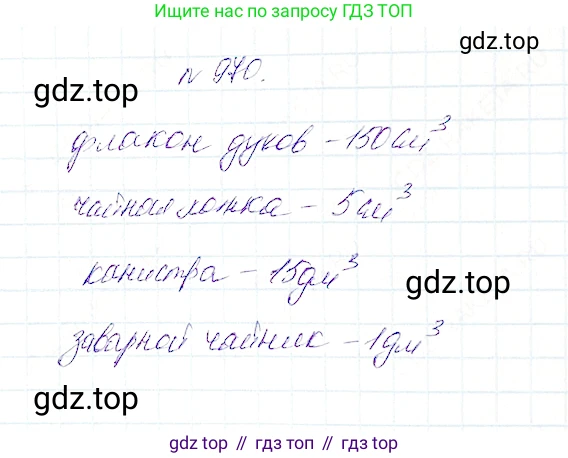 Ищите нас по запросу ГДЗ ТОП
gdz.top
№ 970.
gdz.top
флакон духов – 150 см³
чайная ложка – 5 см³
канистра – 15 дм³
gdz.top
заварной чайник – 1 дм³
gdz.top
gdz top // гдз топ // gdz.top